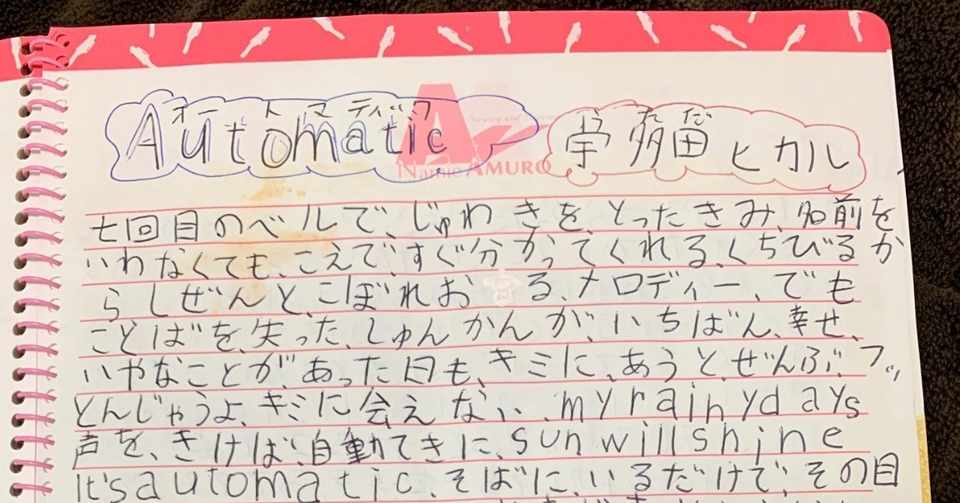 オートマティック
Automatic
うただ
宇多田ヒカル
Namie AMURO
七回目のベルで、じゅわきを、とったきみ、名前を
いわなくても、こえで、すぐ分かってくれる、くちびるか
らしぜんと、こぼれおる、メロディー、でも
ことばを、失った、しゅんかんが、いちばん、幸せ、
いやなことが、あった日も、キミに、あうと、ぜんぶ、フッ
とんじゃうよ、キミに会えない、my rainy days
声を、きけば、自動てきに、sun will shine
It's automatic、そばに、いるだけで、その目